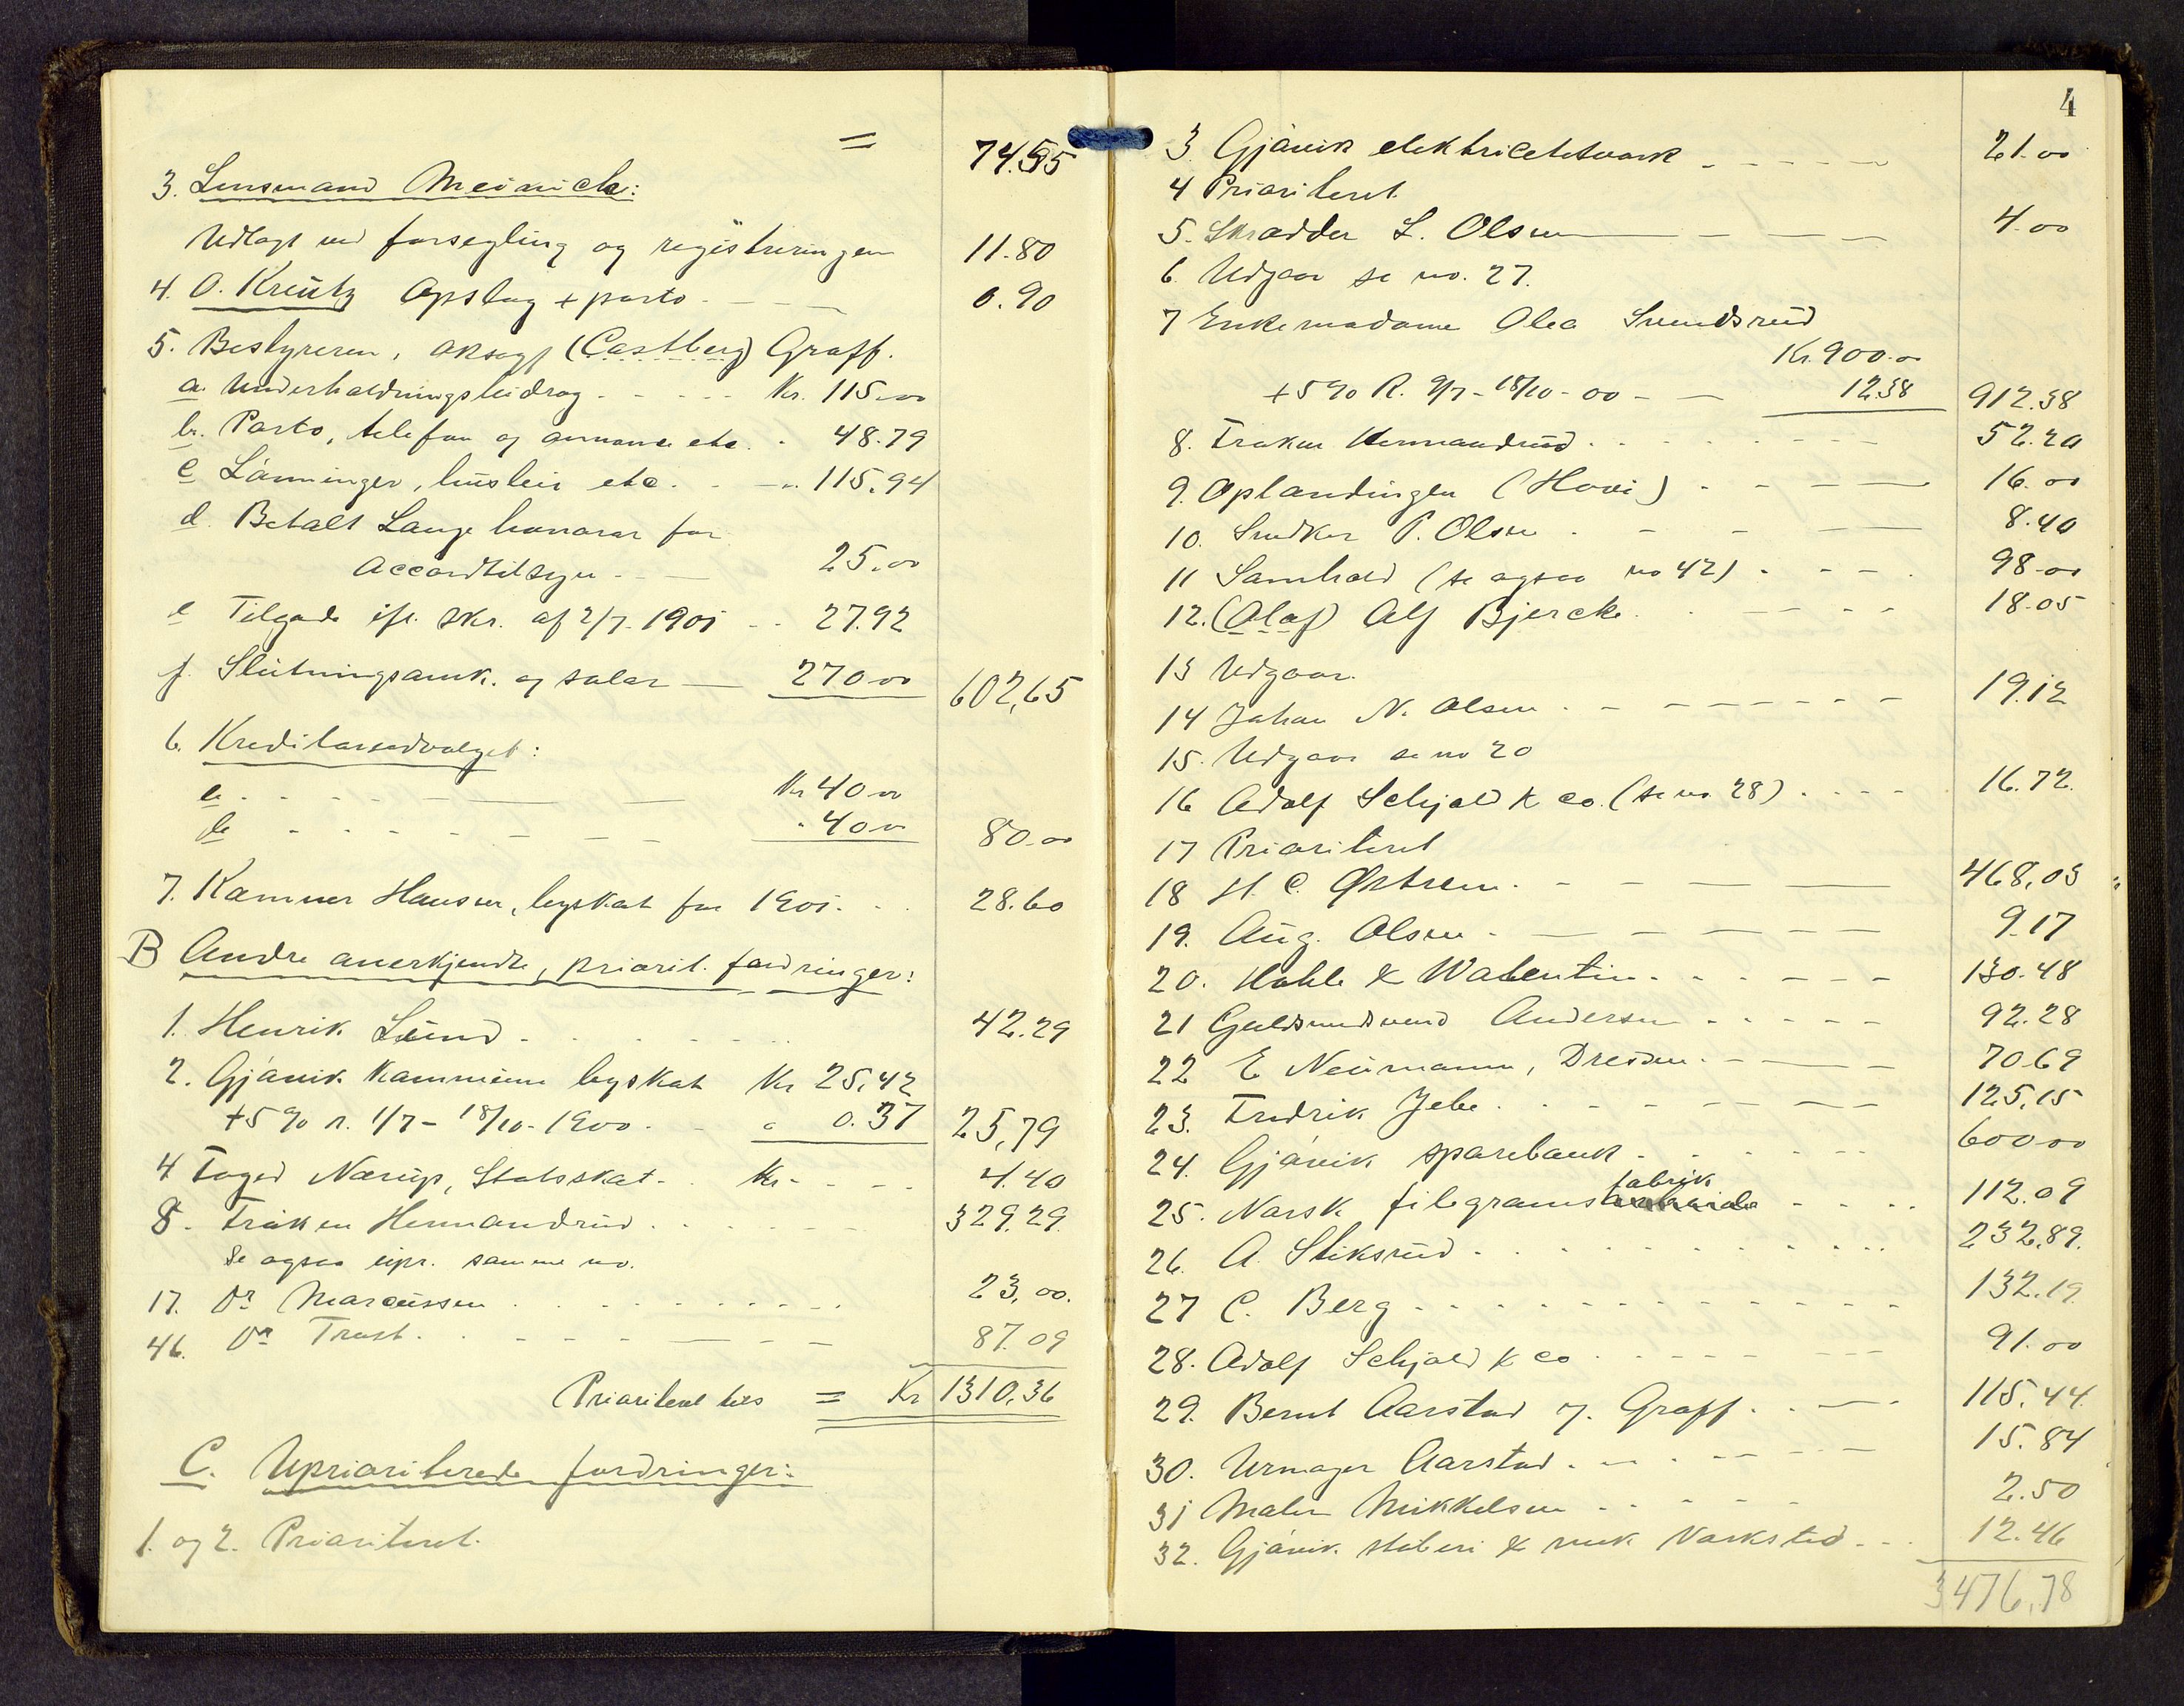 = 74.55
3. Lensmand Meinich:
Udlagt ved forsegling og registreringen 11.80
4. O. Kreutz Opslag + porto - - - 0.90
5. Bestyreren, oksagf (Castberg) Graff.
a. Underholdningsbidrag - - - - - Kr. 115.00
b. Porto, telefon og annonce etc. - 48.79
c Lønninger, husleie etc. - - " 115.94
d. Betalt Lange honorar for
Accordtilsyn - - 25.00
e Tilgode ifl. skr. af 2/7 1901 - - 27.92
f. Slutningsomk. og salær — 270.00 602,65
6. Kreditorudvalget:
a. - - - - — — Kr 40.00
b - - - - - - - " 40.00 80.00
7. Kæmner Hansen, byskat for 1901. - . 28.60
B Andre anerkjendte, priorit. fordringer:
1. Henrik Lund - . . . . . . 42.29
2. Gjøvik Kommune byskat Kr 25,42
+5% r. 1/7 - 18/10 - 1900. - " 0.37 25,79
4 Foged Nærup, Statsskat - . Kr - - - - 4.40
8. Frøken Hermandrud . . . . . . 329.29.
Se ogsaa upr. samme no.
17. Dr Marcussen . . . . . . . . 23,00.
46. Dr Trast . . - - - - — - - 87.09
Prioriteret tils = Kr 1310,36
C. Uprioriterede fordringer:
1. og 2. Prioriteret.
4
3. Gjøvik elektricitetsværk - - - - - 21.00
4 Prioriteret.
5. Skrædder L. Olsen — — — 4.00
6 Udgaar se no. 27.
7 Enkemadame Olea Svendsrud
Kr. 900.00
+5% R. 9/7 - 18/10 - 00 - — 12.38 912.38
8. Frøken Hermandrud . . . - - - - 52.20
9. Oplandingen (Hovi) - - - — 16.00
10. Snedker P. Olsen . - - — 8.40
11 Samhold (se ogsaa no 42) . - - - . 98.00
12. (Olaf) Alf Bjercke . . - - - - 18.05
13 Udgaar.
14 Johan N. Olsen . - - - - - - - 19.12
15. Udgaar se no 20
16 Adolf Schjold & co. (se no. 28) . . - - 16.72.
17 Prioriteret
18 H. C. Østrem . - - — — 468,03
19. Aug. Olsen - — — — — 9.17
20. Hohle & Wabentin - - - - - - 130.48
21 Guldsmedsvend Andersen - - - - - 92.28
22 E Neumann, Dresden. - — - 70.69
23. Fredrik Jebe . - - - — — 125,15
24. Gjøvik sparebank . . . . - - 600.00
fabrik
25. Norsk filigrams - - . . 112.09
26. A. Sliksrud . . . . . . . . 232,89.
27 C. Berg . . . . . . . . . . 132.19
28. Adolf Schjold & co . . . - - - - 91.00
29. Bernt Aarstad v. Graff . . - - - 115.44.
30. Urmager Aarstad . - . - - - 15.84
31 Maler Mikkelsen - - - - - 2.50
32. Gjøvik støberi & mek Værksted - - . 12.46
3476,78